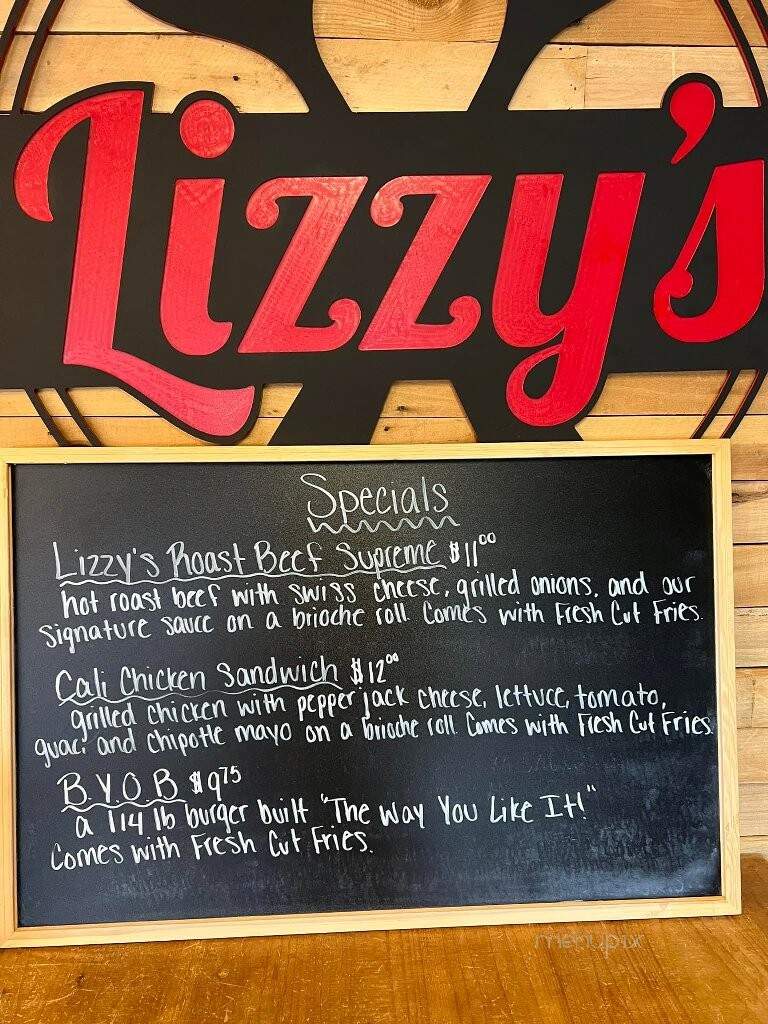 Lizzy's
Specials
Lizzy's Roast Beef Supreme $11.00
hot roast beef with swiss cheese, grilled onions, and our
signature sauce on a brioche roll. Comes with Fresh Cut Fries.
Cali Chicken Sandwich $12.00
grilled chicken with pepper jack cheese, lettuce, tomato,
guac, and chipotle mayo on a brioche roll. Comes with Fresh Cut Fries.
B.Y.O.B $9.75
a 1/4 lb burger built "The Way You Like It!"
Comes with Fresh Cut Fries.
menupix